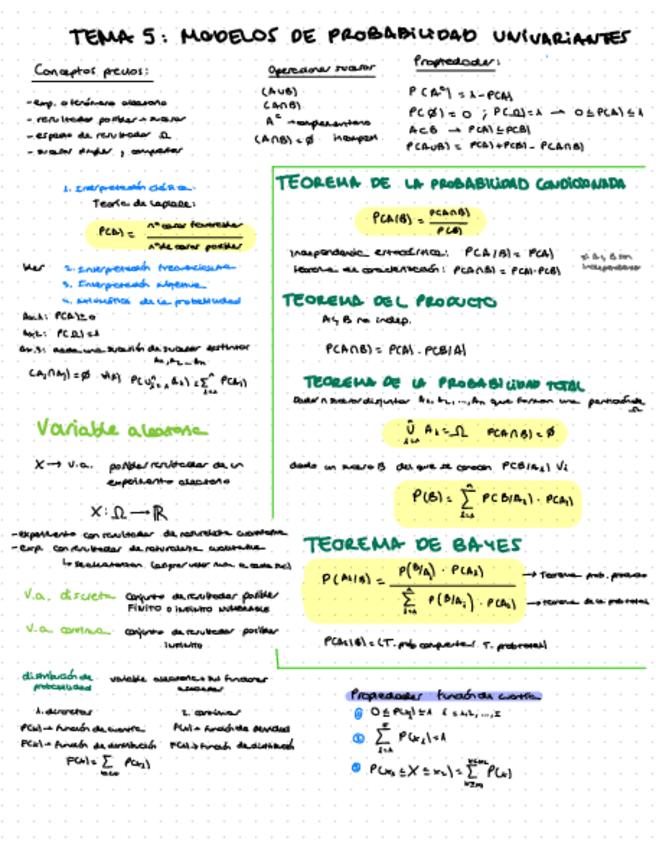 TEMA 5: MODELOS DE PROBABILIDAD UNIVARIANTES
Conceptos previos:
- exp. o fenómeno aleatorio
- resultados posibles → suceso
- espacio de resultados Ω
- suceso simple y compuesto
Operaciones sucesos
(A∪B)
(A∩B)
A^c → complementario
(A∩B) = ∅
Propiedades:
P(A^c) = 1 - P(A)
P(∅) = 0 ; P(Ω) = 1 → 0 ≤ P(A) ≤ 1
A⊂B → P(A) ≤ P(B)
P(A∪B) = P(A) + P(B) - P(A∩B)
1. Interpretación clásica.
Teoría de Laplace:
P(A) = nº casos favorables / nº de casos posibles
2. Interpretación frecuencialista
3. Interpretación subjetiva
4. Axiomática de la probabilidad
Ax.1: P(A) ≥ 0
Ax.2: P(Ω) = 1
Ax.3: dada una sucesión de sucesos
A₁, A₂ ... Aₙ
Variable aleatoria
X → v.a. posibles resultados de un
experimento aleatorio
X: Ω → ℝ
- experimento con resultados de naturaleza cuantitativa
- exp. con resultados de naturaleza cualitativa
V.a. discreta conjunto de resultados posibles
FINITO O INFINITO NUMERABLE
V.a. continua conjunto de resultados posibles
INFINITO
distribución de probabilidad variable aleatoria + sus funciones
1. discretas
P(x) → función de cuantía
F(x) → función de distribución
F(x) = ∑ P(xᵢ)
2. continuas
f(x) → función de densidad
F(x) → función de distribución
TEOREMA DE LA PROBABILIDAD CONDICIONADA
P(A/B) = P(A∩B) / P(B)
Independencia estocástica: P(A/B) = P(A)
teorema de caracterización: P(A∩B) = P(A)·P(B)
si A y B son
independientes
TEOREMA DEL PRODUCTO
A y B no indep.
P(A∩B) = P(A) · P(B/A)
TEOREMA DE LA PROBABILIDAD TOTAL
Dados n sucesos disjuntos A₁, A₂, ..., Aₙ que forman una partición de Ω
⋃ Aᵢ = Ω P(A∩B) = ∅
dado un suceso B del que se conocen P(B/Aᵢ) ∀i
P(B) = ∑ P(B/Aᵢ) · P(Aᵢ)
TEOREMA DE BAYES
P(Aᵢ/B) = P(B/Aᵢ) · P(Aᵢ) / ∑ P(B/Aᵢ) · P(Aᵢ)
→ Teorema prob. producto
→ teorema de la prob total
Propiedades función de cuantía
① 0 ≤ P(xᵢ) ≤ 1 i = 1, 2, ...,
② ∑ P(xᵢ) = 1
③ P(x₁ ≤ X ≤ x₂) = ∑ P(x)